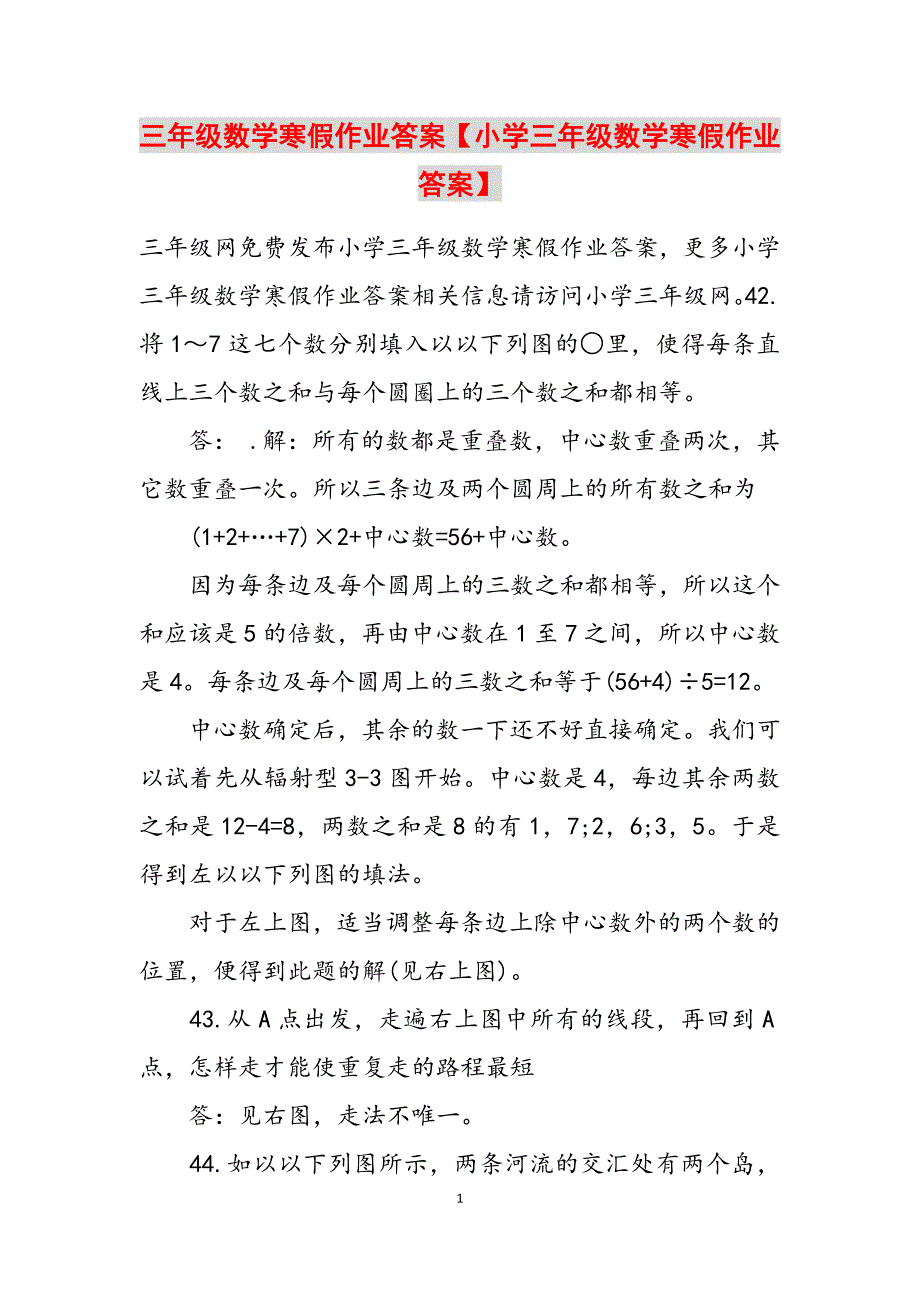 三年级数学寒假作业答案【小学三年级数学寒假作业
答案】
三年级网免费发布小学三年级数学寒假作业答案，更多小学
三年级数学寒假作业答案相关信息请访问小学三年级网。42.
将1～7这七个数分别填入以以下列图的○里，使得每条直
线上三个数之和与每个圆圈上的三个数之和都相等。
答： .解：所有的数都是重叠数，中心数重叠两次，其
它数重叠一次。所以三条边及两个圆周上的所有数之和为
(1+2+…+7)×2+中心数=56+中心数。
因为每条边及每个圆周上的三数之和都相等，所以这个
和应该是5的倍数，再由中心数在1至7之间，所以中心数
是4。每条边及每个圆周上的三数之和等于(56+4)÷5=12。
中心数确定后，其余的数一下还不好直接确定。我们可
以试着先从辐射型3-3图开始。中心数是4，每边其余两数
之和是12-4=8，两数之和是8的有1，7;2，6;3，5。于是
得到左以以下列图的填法。
对于左上图，适当调整每条边上除中心数外的两个数的
位置，便得到此题的解(见右上图)。
43.从A点出发，走遍右上图中所有的线段，再回到A
点，怎样走才能使重复走的路程最短
答：见右图，走法不唯一。
44.如以以下列图所示，两条河流的交汇处有两个岛，
1